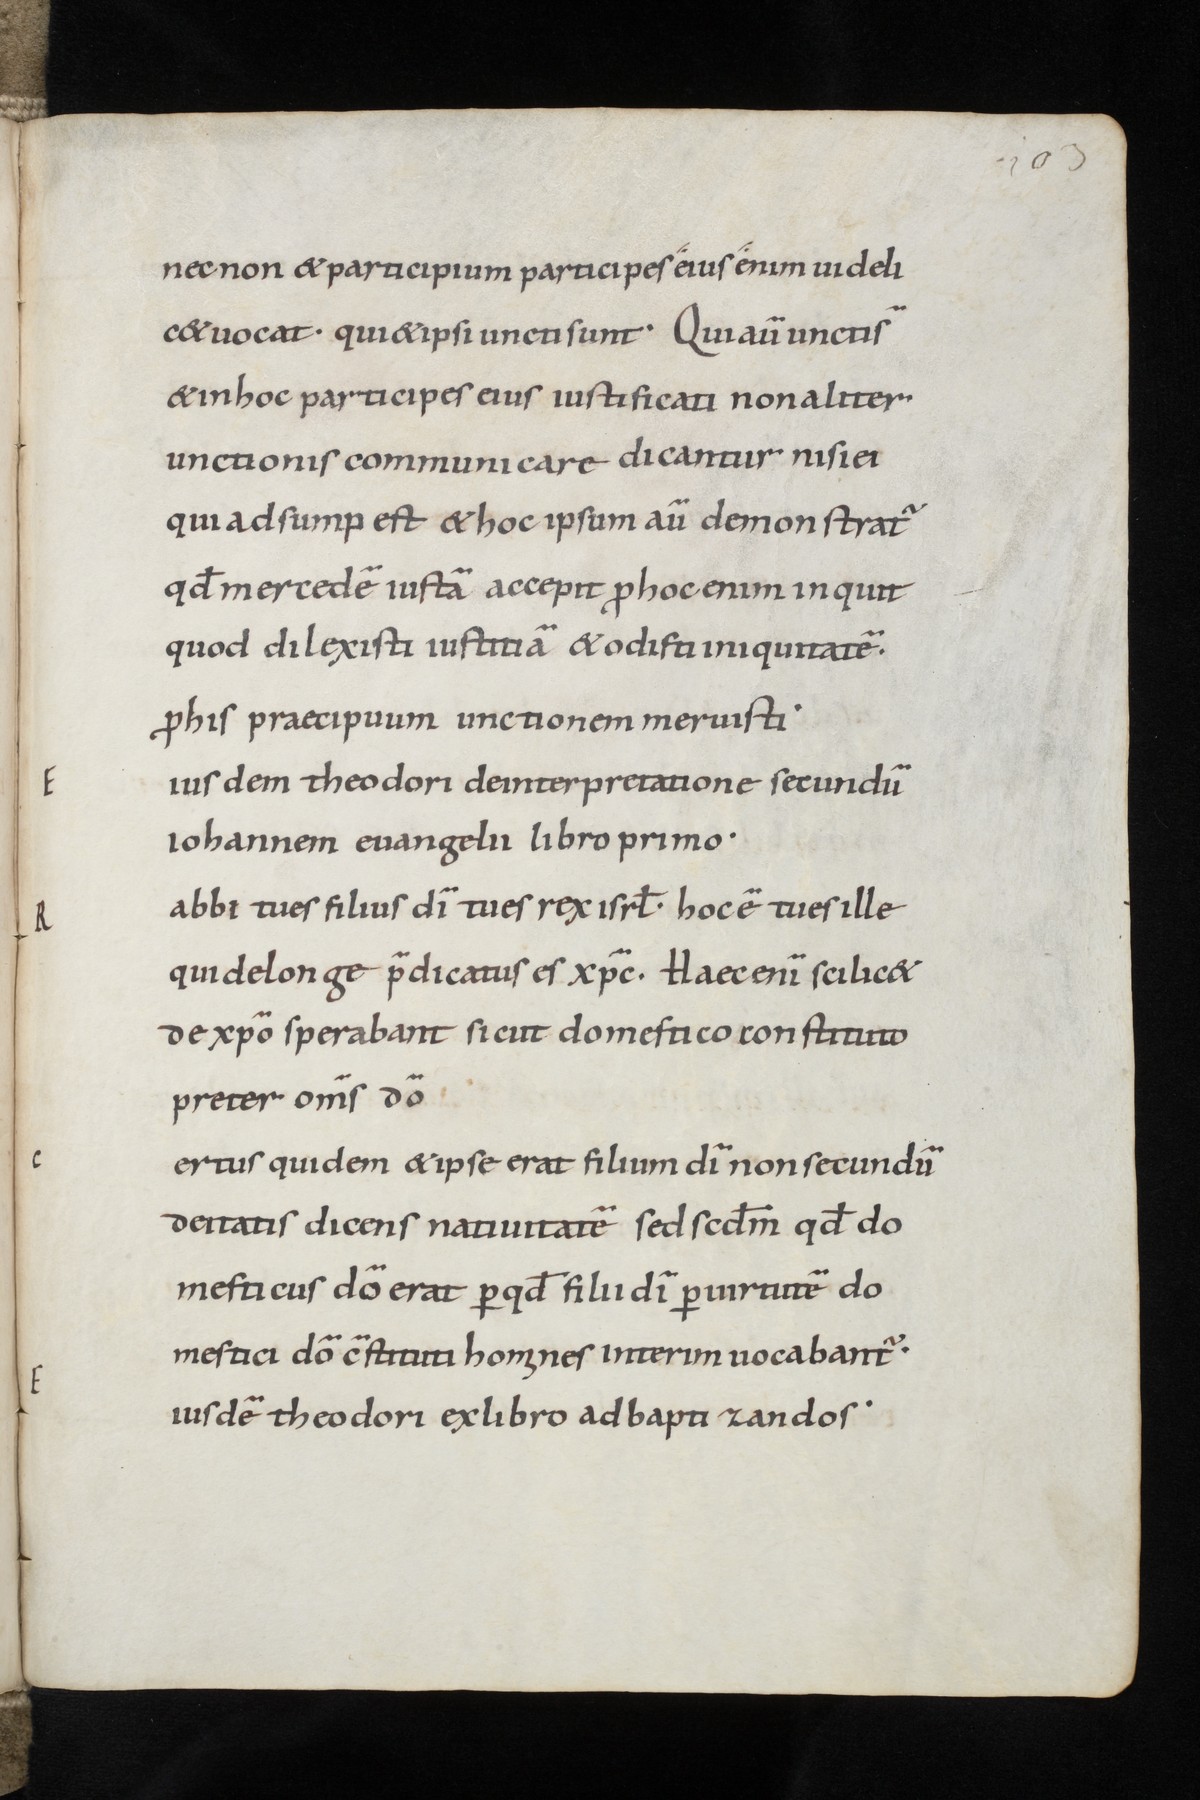 103
necnon & participium participes eius enim uideli
c& uocat· qui & ipsi uncti sunt· Qui aū unctis̄
& in hoc participes eius iustificati non aliter
unctionis communicare dicantur nisi ei
qui adsump est & hoc ipsum aū demonstrat᷒
qđ mercedē iustā accepit ꝓ hoc enim inquit
quod dilexisti iustitiā & odisti iniquitatē·
ꝓ his praecipuum unctionem meruisti·
E iusdem theodori de interpretatione secundū
iohannem euangelii libro primo·
R abbi tu es filius dī tu es rex isrł· hoc ē tu es ille
qui de longe p̄dicatus es xp̄c· Haec enī scilic&
de xpō sperabant sicut domestico constituto
preter om̄s dō
C ertus quidem & ipse erat filium dī non secundū
deitatis dicens natiuitatē sed scd̄m qđ do
mesticus dō erat ꝑ qđ filii dī ꝑ uirtutē do
mestici dō c̄stituti homines interim uocabant᷒·
E iusdē theodori ex libro ad baptizandos·